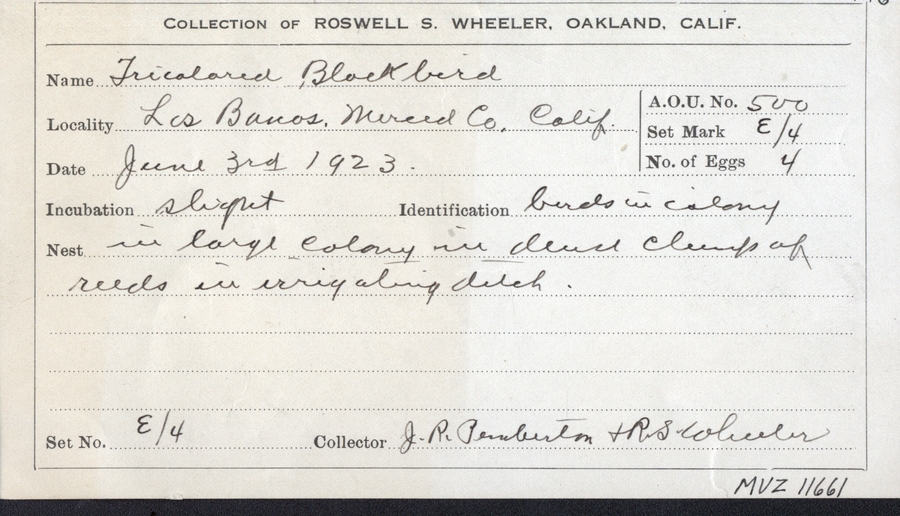 COLLECTION OF ROSWELL S. WHEELER, OAKLAND, CALIF.
Name Tricolored Blackbird
Locality Los Banos, Merced Co. Calif.
A.O.U. No. 500
Set Mark E/4
Date June 3rd 1923.
No. of Eggs 4
Incubation slight Identification birds in colony
Nest in large colony in dense clump of
reeds in irrigating ditch.
Set No. E/4 Collector J. R. Pemberton + R S Wheeler
MVZ 11661